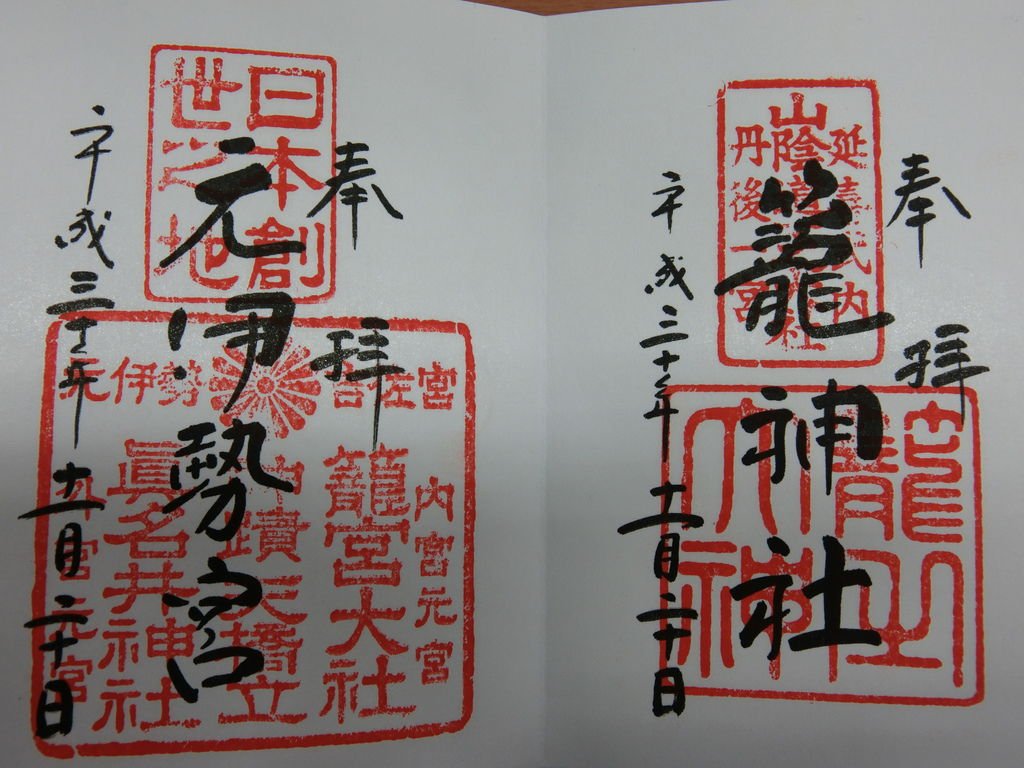 奉拝
籠神社
平成三十年
十一月二十日
延喜式内
山陰
丹後一宮
籠之大神
奉拝
元伊勢宮
平成三十年
十一月二十日
日本創
世之地
宮
元伊勢
内宮元宮
籠宮大社
天橋立
眞名井神社